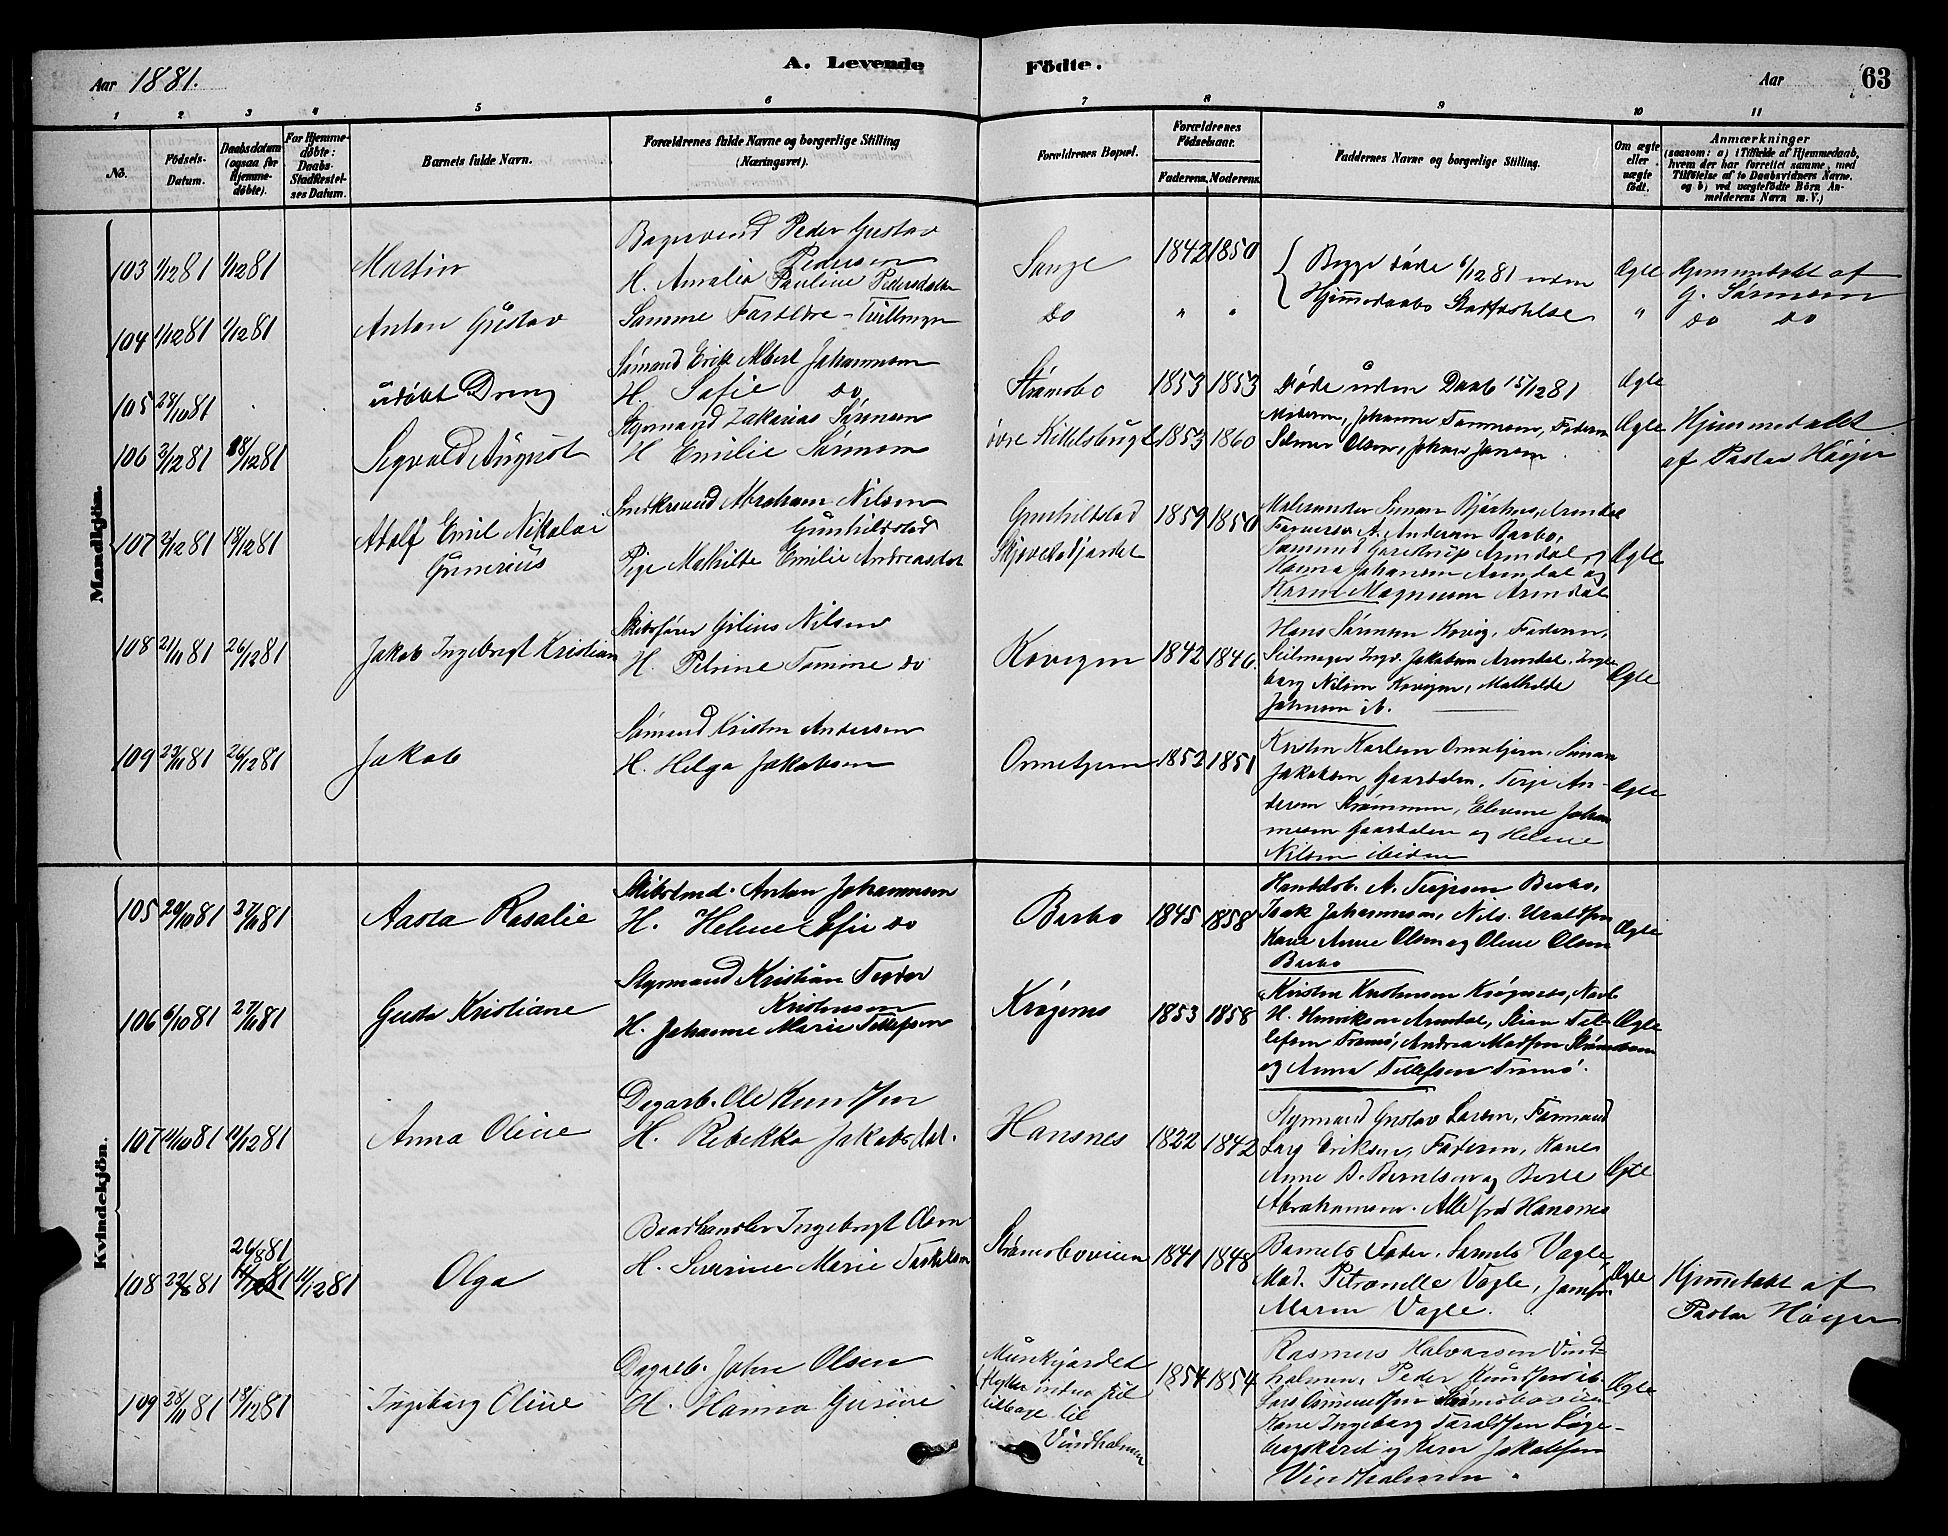 Aar 1881.
A. Levende Födte.
Aar
63
1 2 3 4 5 6 7 8 9 10 11
No.
Födsels-Datum.
Daabsdatum (ogsaa for Hjemme-döbte).
For Hjemme-döbte: Daabs-Stadfæstel-ses Datum.
Barnets fulde Navn.
Forældrenes fulde Navne og borgerlige Stilling (Næringsvei).
Forældrenes Bopæl.
Forældrenes Födselsaar.
Faderens. Moderens.
Faddernes Navne og borgerlige Stilling.
Om ægte eller uægte födt.
Anmærkninger
(saasom: a) i Tilfælde af Hjemmedaab, hvem der har forrettet samme, med Tilföielse af to Daabsvidners Navne, og b) ved uægtefödte Börn An-melderens Navn m. V.)
Mandkjön.
103 1/12 81 1/12 81 Martin
Bagersvend Peder Gustav
Pedersen
H. Amalia Pauline Pedersdatter
Songe 1842 1850
Begge døde 6/12 81 uden
Hjemmedaabs Stadfæstelse
Ægte
Hjemmedøbt af
G. Sørensen
104 1/12 81 1/12 81 Anton Gustav
Samme Forældre - Tvillinger
do " " " do do
105 28/10 81 udøbt Dreng
Sømand Erik Albert Johannesen
H. Sofie do
Strømsbo 1853 1853 Døde uden Daab 15/12 81 Ægte
106 3/12 81 18/12 81 Sigvald August
Styrmand Zakarias Sørensen
H Emilie Sørensen
øvre Kittelsbugt 1853 1860
Moderen, Johanne Tønnesen, Faderen
Selmer Olsen, Johan Jensen.
Ægte
Hjemmedøbt
af Pastor Høyer
107 2/12 81 18/12 81 Adolf Emil Nikolai
Gunerius
Snedkersvend Abraham Nilsen
Gunhildsstad
Pige Mathilde Emilie Andreasdat
Gunhildstad
1859 1850
Malersvender Simon Bjørknes, Arendal
A. Andersen Barbo,
Arendal og
Hanna Johansen Arendal og
Karen Magnusen Arendal
Ægte
108 21/11 81 26/12 81 Jakob Ingebrigt Kristian
Skibsfører Gilius Nilsen
H. Petrine Tomine do
Kovigen 1842 1846
Hans Sørensen Kovig, Faderen,
Seilmager Ingv. Jakobsen Arendal, Inge
borg Nilsen Kovigen, Mathilde
Johnsen ib.
Ægte
109 23/11 81 26/12 81 Jakob
Sømand Kristen Andersen
H. Helga Jakobsen
Ormetjern 1852 1851
Kristen Karlsen Ormetjern, Simon
Jakobsen Gaardalen, Terje An-
dersen Strømmen, Johan
nesen Gaardalen og Helene
Nilsen ibidem
Ægte
Kvindekjön.
105 29/10 81 27/11 81 Aasta Rosalie
Skibstmd. Anton Johannesen
H. Helene Sofie do
Barbo 1845 1858
Handelsb. A. Terjesen Barbo,
Isak Johannesen, Nils
Kone Anne Olsen og Oline Olsen
Barbo
Ægte
106 6/10 81 27/11 81 Gusta Kristiane
Styrmand Kristian Teodor
Kristensen
H. Johanne Marie Tellefsen
Krøgenes 1853 1858
Kristen Kristensen Krøgenes,
H. Henriksen Arendal, Stian Tel-
lefsen Tromø, Andrea Madsen
og Anna Tellefsen Tromø.
Ægte
107 11/10 81 11/12 81 Anna Oline
Dagarb. Ole Knutsen
H. Rebekka Jakobsdat.
Hansnes 1822 1842
Styrmand Gustav Larsen, Tømmand
Lars Eriksen, Faderen, Kone
Anne B. Berntsen og Berte
Abrahamsen. Alle fra Hansnes
Ægte
108 22/8 81 26/8 81 11/12 81 Olga
Baadhandler Ingebrigt Olsen
H. Severine Marie Terkelsen
Strømsboveien 1841 1848
Barnets Fader, Vagle,
Mad. Petronelle Vagle, Jomfr.
Maren Vagle.
Ægte
Hjemmedøbt af
Pastor Høyer
109 28/11 81 18/12 81 Ingeborg Oline
Dagarb. John Olsen
H. Hanna Gurine
Munkgaardet
(flytter
tilbage til
Vindholmen
1854 1854
Rasmus Halvorsen Vind-
holmen, Peder Knudsen ib.
Lars Strømsboveien
Kone Ingeborg Taraldsen Longe-
og Karen Jakobsen
Vindholmen
Ægte